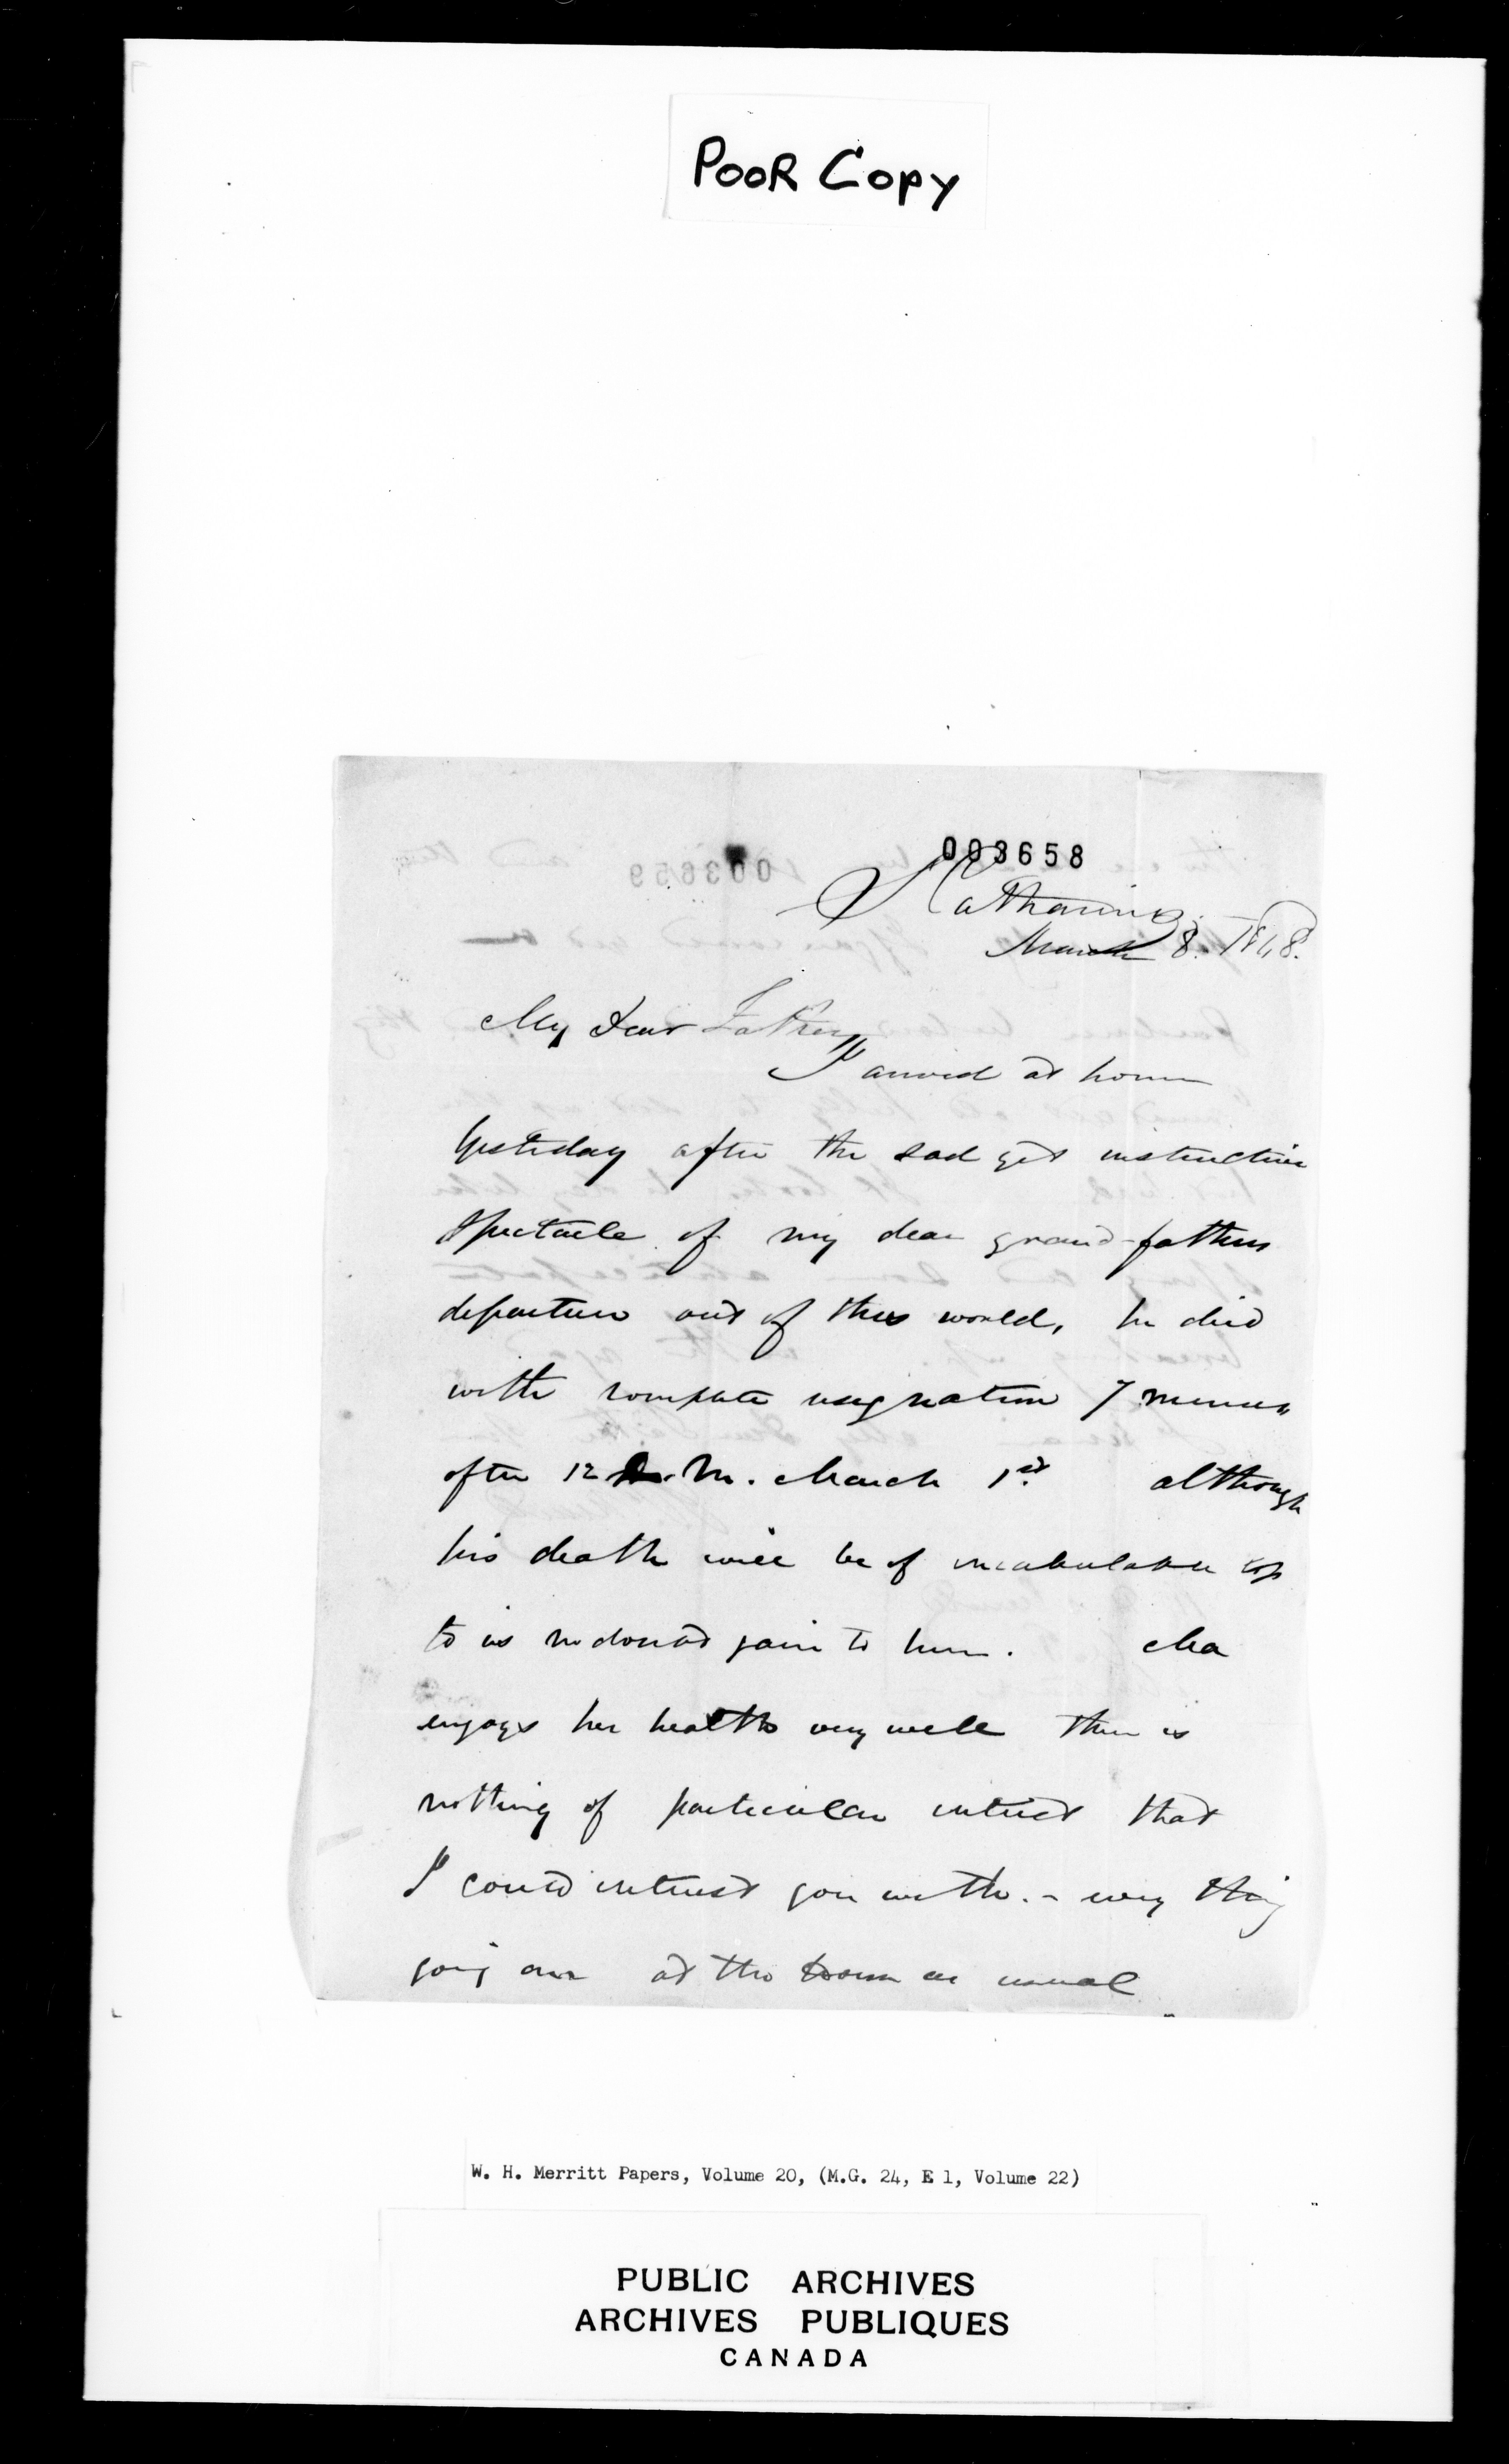 POOR COPY
003658
St Catharines
March 8. 1848.
My Dear Father
I arrived at home
Yesterday after the sad yet instructive
Spectacle of my dear grand-fathers
departure out of this world, he died
with complete resignation 7 minutes
after 12 . M. March 1st. although
his death will be of incalculable loss
to us no doubt gain to him. Ma
enjoys her health very well there is
nothing of particular interest that
I could interest you with. - every thing
going on at the as usual
W. H. Merritt Papers, Volume 20, (M.G. 24, E 1, Volume 22)
PUBLIC ARCHIVES
ARCHIVES PUBLIQUES
CANADA